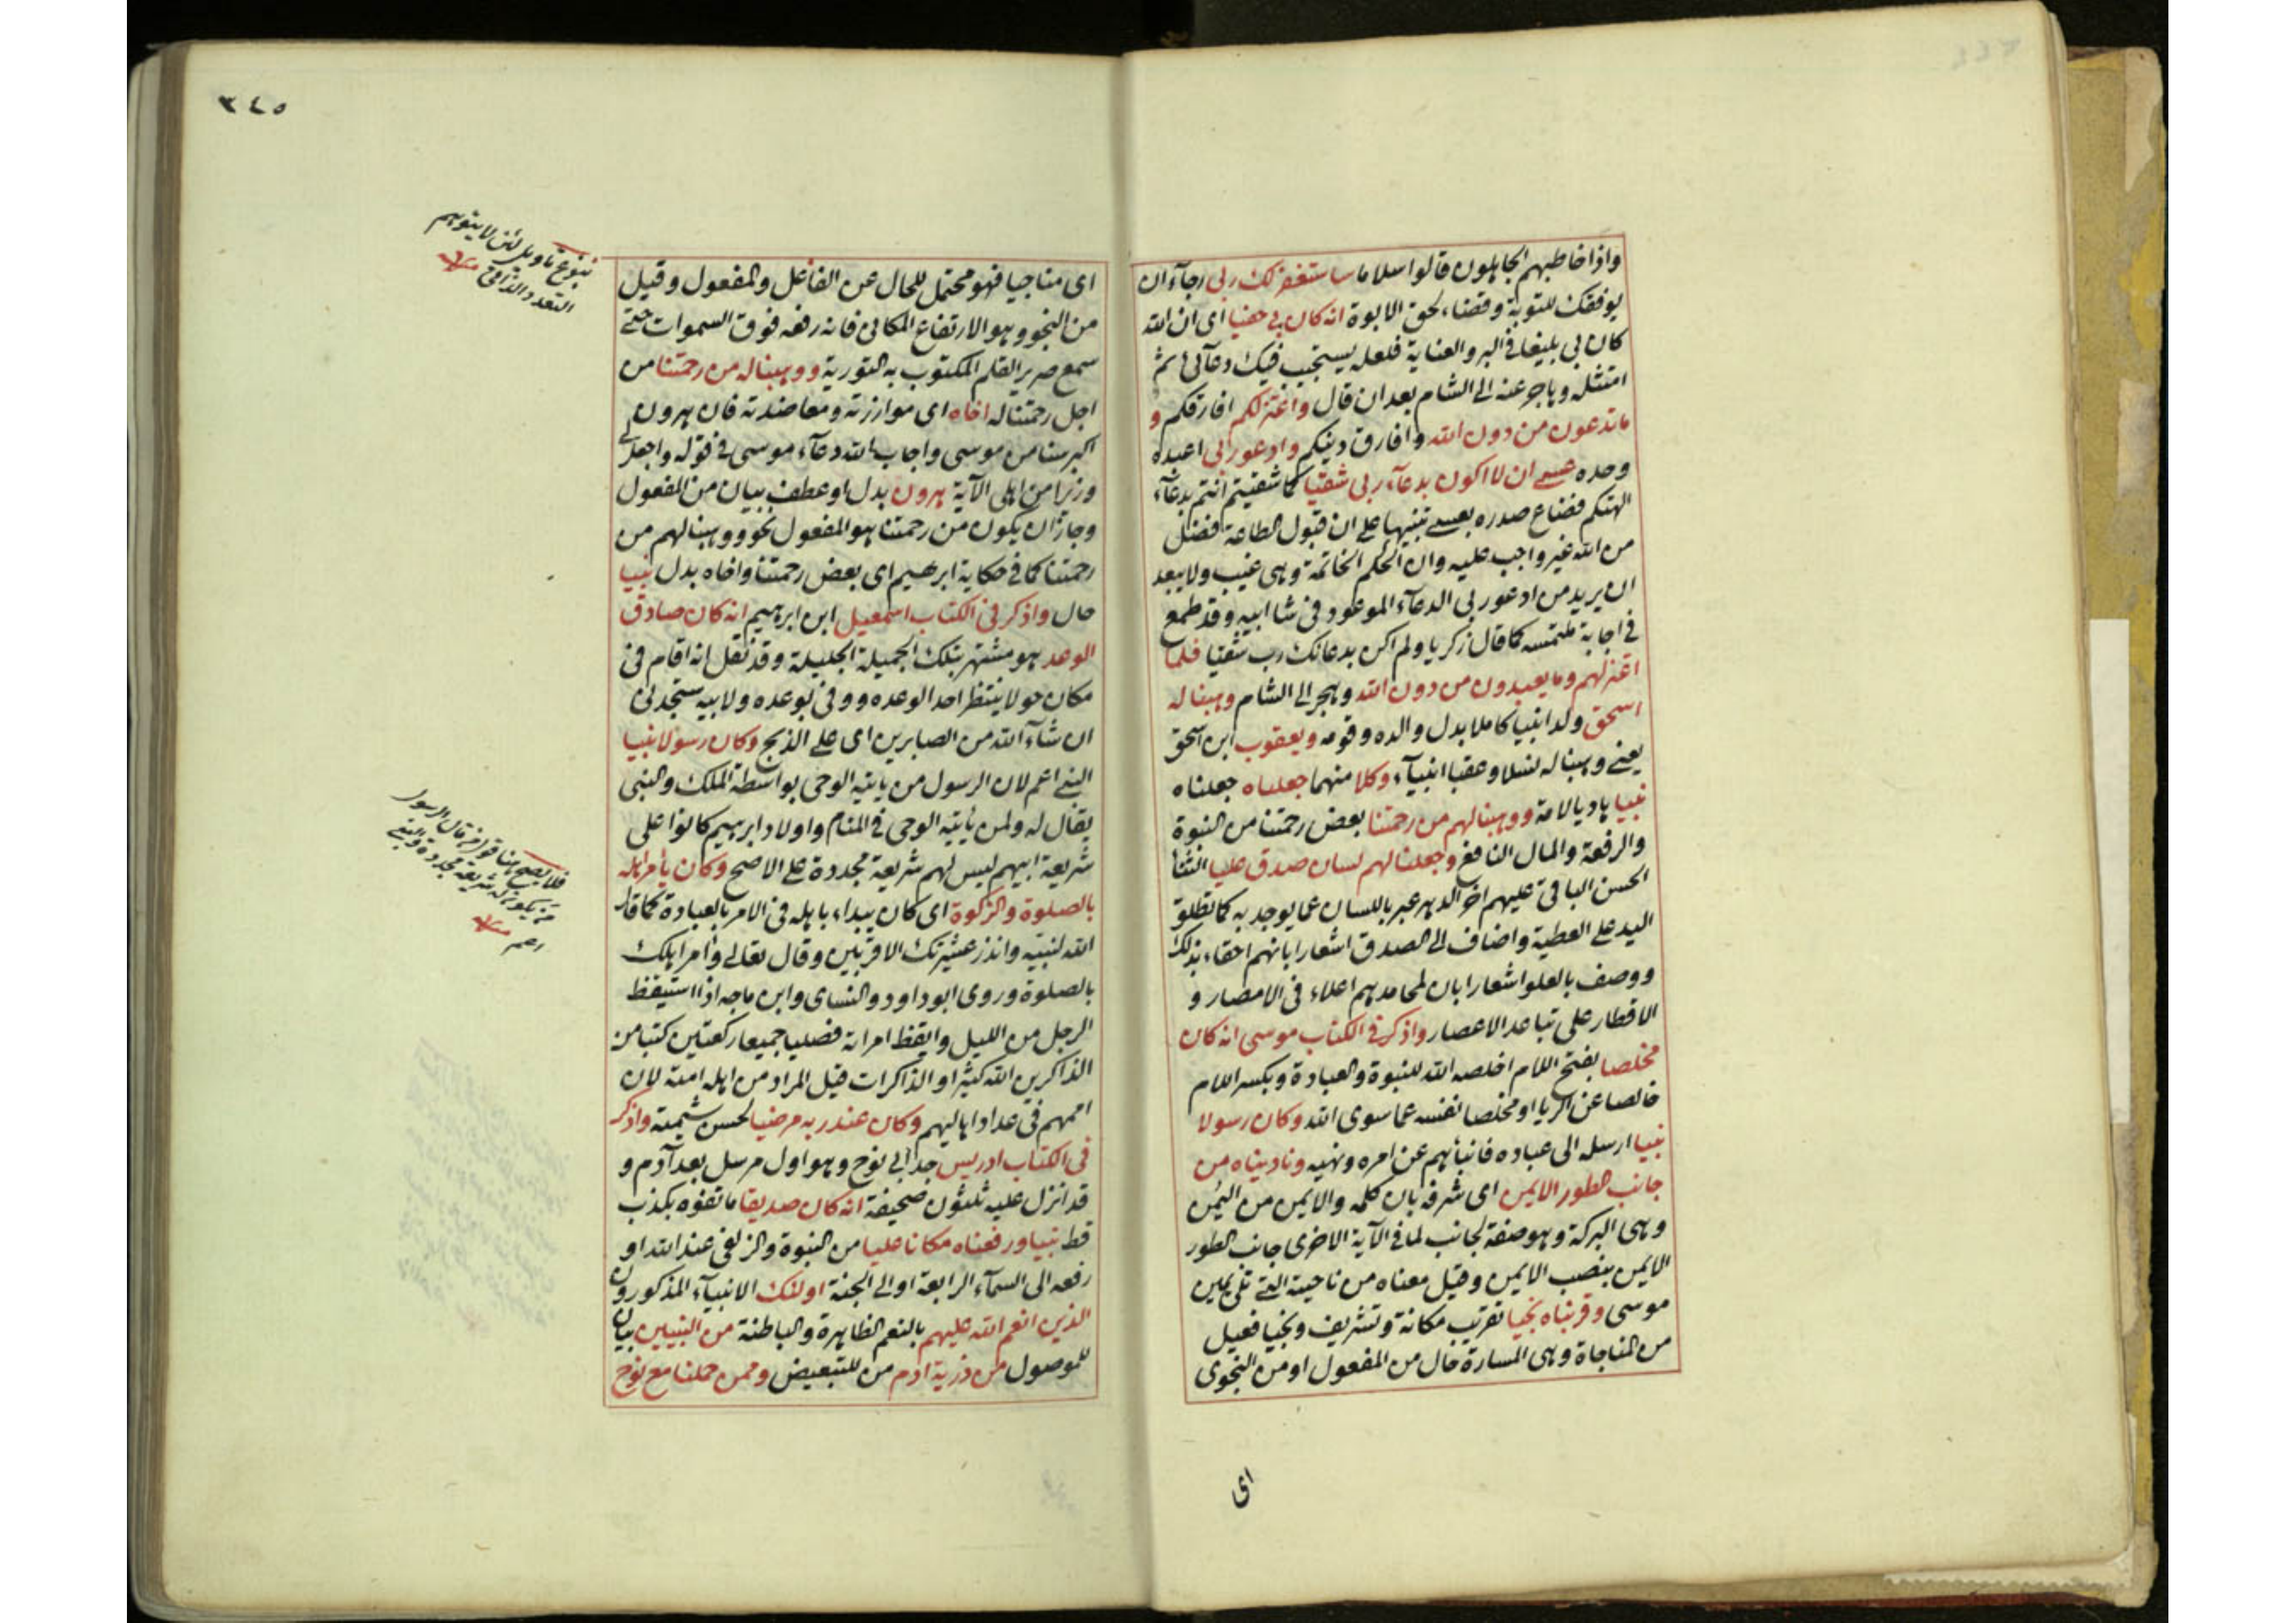 واذا خاطبهم الجاهلون قالوا سلاما ساستغفر لك ربى رجاء ان
يوفقك للتوبة وقضاء لحق الابوة انه كان بى حفيا اى ان الله
كان بى بليغا فى البر والعناية فلعله يستجيب فيك دعائى ثم
امتثله وهاجر عنه الى الشام بعد ان قال واعتزلكم افارقكم و
ما تدعون من دون الله وافارق دينكم وادعو ربى اعبده
وحده عسى ان لا اكون بدعاء ربى شقيا كما شقيتم انتم بدعاء
الهتكم فضاع صدره بعسى تنبيها على ان قبول الطاعة فضل
من الله غير واجب عليه وان الحكم الخاتمة وهى غيب ولا يبعد
ان يريد من ادعو ربى الدعاء الموعود فى شا ابيه وقد طمع
فى اجابة ملتمسه كما قال زكريا ولم اكن بدعائك رب شقيا فلما
اعتزلهم وما يعبدون من دون الله وهجر الى الشام وهبنا له
اسحق ولدا نبيا كاملا بدل والده وقومه ويعقوب ابن اسحق
يعنى وهبنا له نسلا وعقبا انبياء وكلا منهما جعلناه جعلناه
نبيا هاديا لامة ووهبنا لهم من رحمتنا بعض رحمتنا من النبوة
والرفعة والمال النافع وجعلنا لهم لسان صدق عليا الثنأ
الحسن الباقى عليهم اخر الدهر عبر باللسان عما يوجد به كما تطلق
اليد على العطية واضاف الى الصدق اشعارا بانهم احقاء بذلك
ووصف بالعلو اشعارا بان لمحامدهم اعلاء فى الامصار و
الاقطار على تباعد الاعصار واذكر فى الكتاب موسى انه كان
مخلصا بفتح اللام اخلصه الله للنبوة والعبادة وبكسر اللام
خالصا عن الريا او مخلصا نفسه عما سوى الله وكان رسولا
نبيا ارسله الى عباده فانبأهم عن امره ونهيه وناديناه من
جانب الطور الايمن اى شرفه بان كلمه والايمن من اليمن
وهى البركة وهو صفة لجانب لما فى الآية الاخرى جانب الطور
الايمن بنصب الايمن وقيل معناه من ناحيته التى تلى يمين
موسى وقربناه نجيا تقريب مكانة وتشريف ونجيا فعيل
من المناجاة وهى المسارة حال من المفعول او من النجوى
اى
٣٤٥
اى مناجيا فهو محتمل للحال عن الفاعل والمفعول وقيل
من النجو وهو الارتفاع المكانى فانه رفعه فوق السموات حتى
سمع صرير القلم المكتوب به التورية ووهبنا له من رحمتنا من
اجل رحمتنا له اخاه اى موازرته ومعاضدته فان هرون
اكبر سنا من موسى واجاب الله دعاء موسى فى قوله واجعل لى
وزيرا من اهلى الآية هرون بدل او عطف بيان من المفعول
وجاز ان يكون من رحمتنا هو المفعول نحو ووهبنا لهم من
رحمتنا كما فى حكاية ابرهيم اى بعض رحمتنا واخاه بدل نبيا
حال واذكر فى الكتاب اسمعيل ابن ابرهيم انه كان صادق
الوعد هو مشتهر بتلك الجميلة الجليلة وقد نقل انه اقام فى
مكان حولا ينتظر احدا لوعده ووفى بوعده ولابيه ستجدنى
ان شاء الله من الصابرين اى على الذبح وكان رسولا نبيا
النبى اعم لان الرسول من ياتيه الوحى بواسطة الملك والنبى
يقال له ولمن ياتيه الوحى فى المنام واولاد ابرهيم كانوا على
شريعة ابيهم ليس لهم شريعة مجددة على الاصح وكان يأمر اهله
بالصلوة والزكوة اى كان يبداء باهله فى الامر بالعبادة كما قال
الله لنبيه وانذر عشيرتك الاقربين وقال تعالى وأمر اهلك
بالصلوة وروى ابو داود والنساى وابن ماجه اذا استيقظ
الرجل من الليل وايقظ امراته فصليا جميعا ركعتين كتبا من
الذاكرين الله كثيرا والذاكرات قيل المراد من اهله امته لان
اممهم فى عداد اهاليهم وكان عند ربه مرضيا لحسن شيمته واذكر
فى الكتاب ادريس جد ابى نوح وهو اول مرسل بعد آدم و
قد انزل عليه ثلثون صحيفة انه كان صديقا ما تفوه بكذب
قط نبيا ورفعناه مكانا عليا من النبوة والزلفى عند الله او
رفعه الى السماء الرابعة او الى الجنة اولئك الانبياء المذكورون
الذين انعم الله عليهم بالنعم الظاهرة والباطنة من النبيين بيان
للموصول من ذرية ادم من للتبعيض وممن حملنا مع نوح
بنوع تاويل لئن لا يتوهم
التعدد الذاتى
فلا يصح هنا قول من قال الرسول
من يكون له شريعة مجددة والنبى
اعم